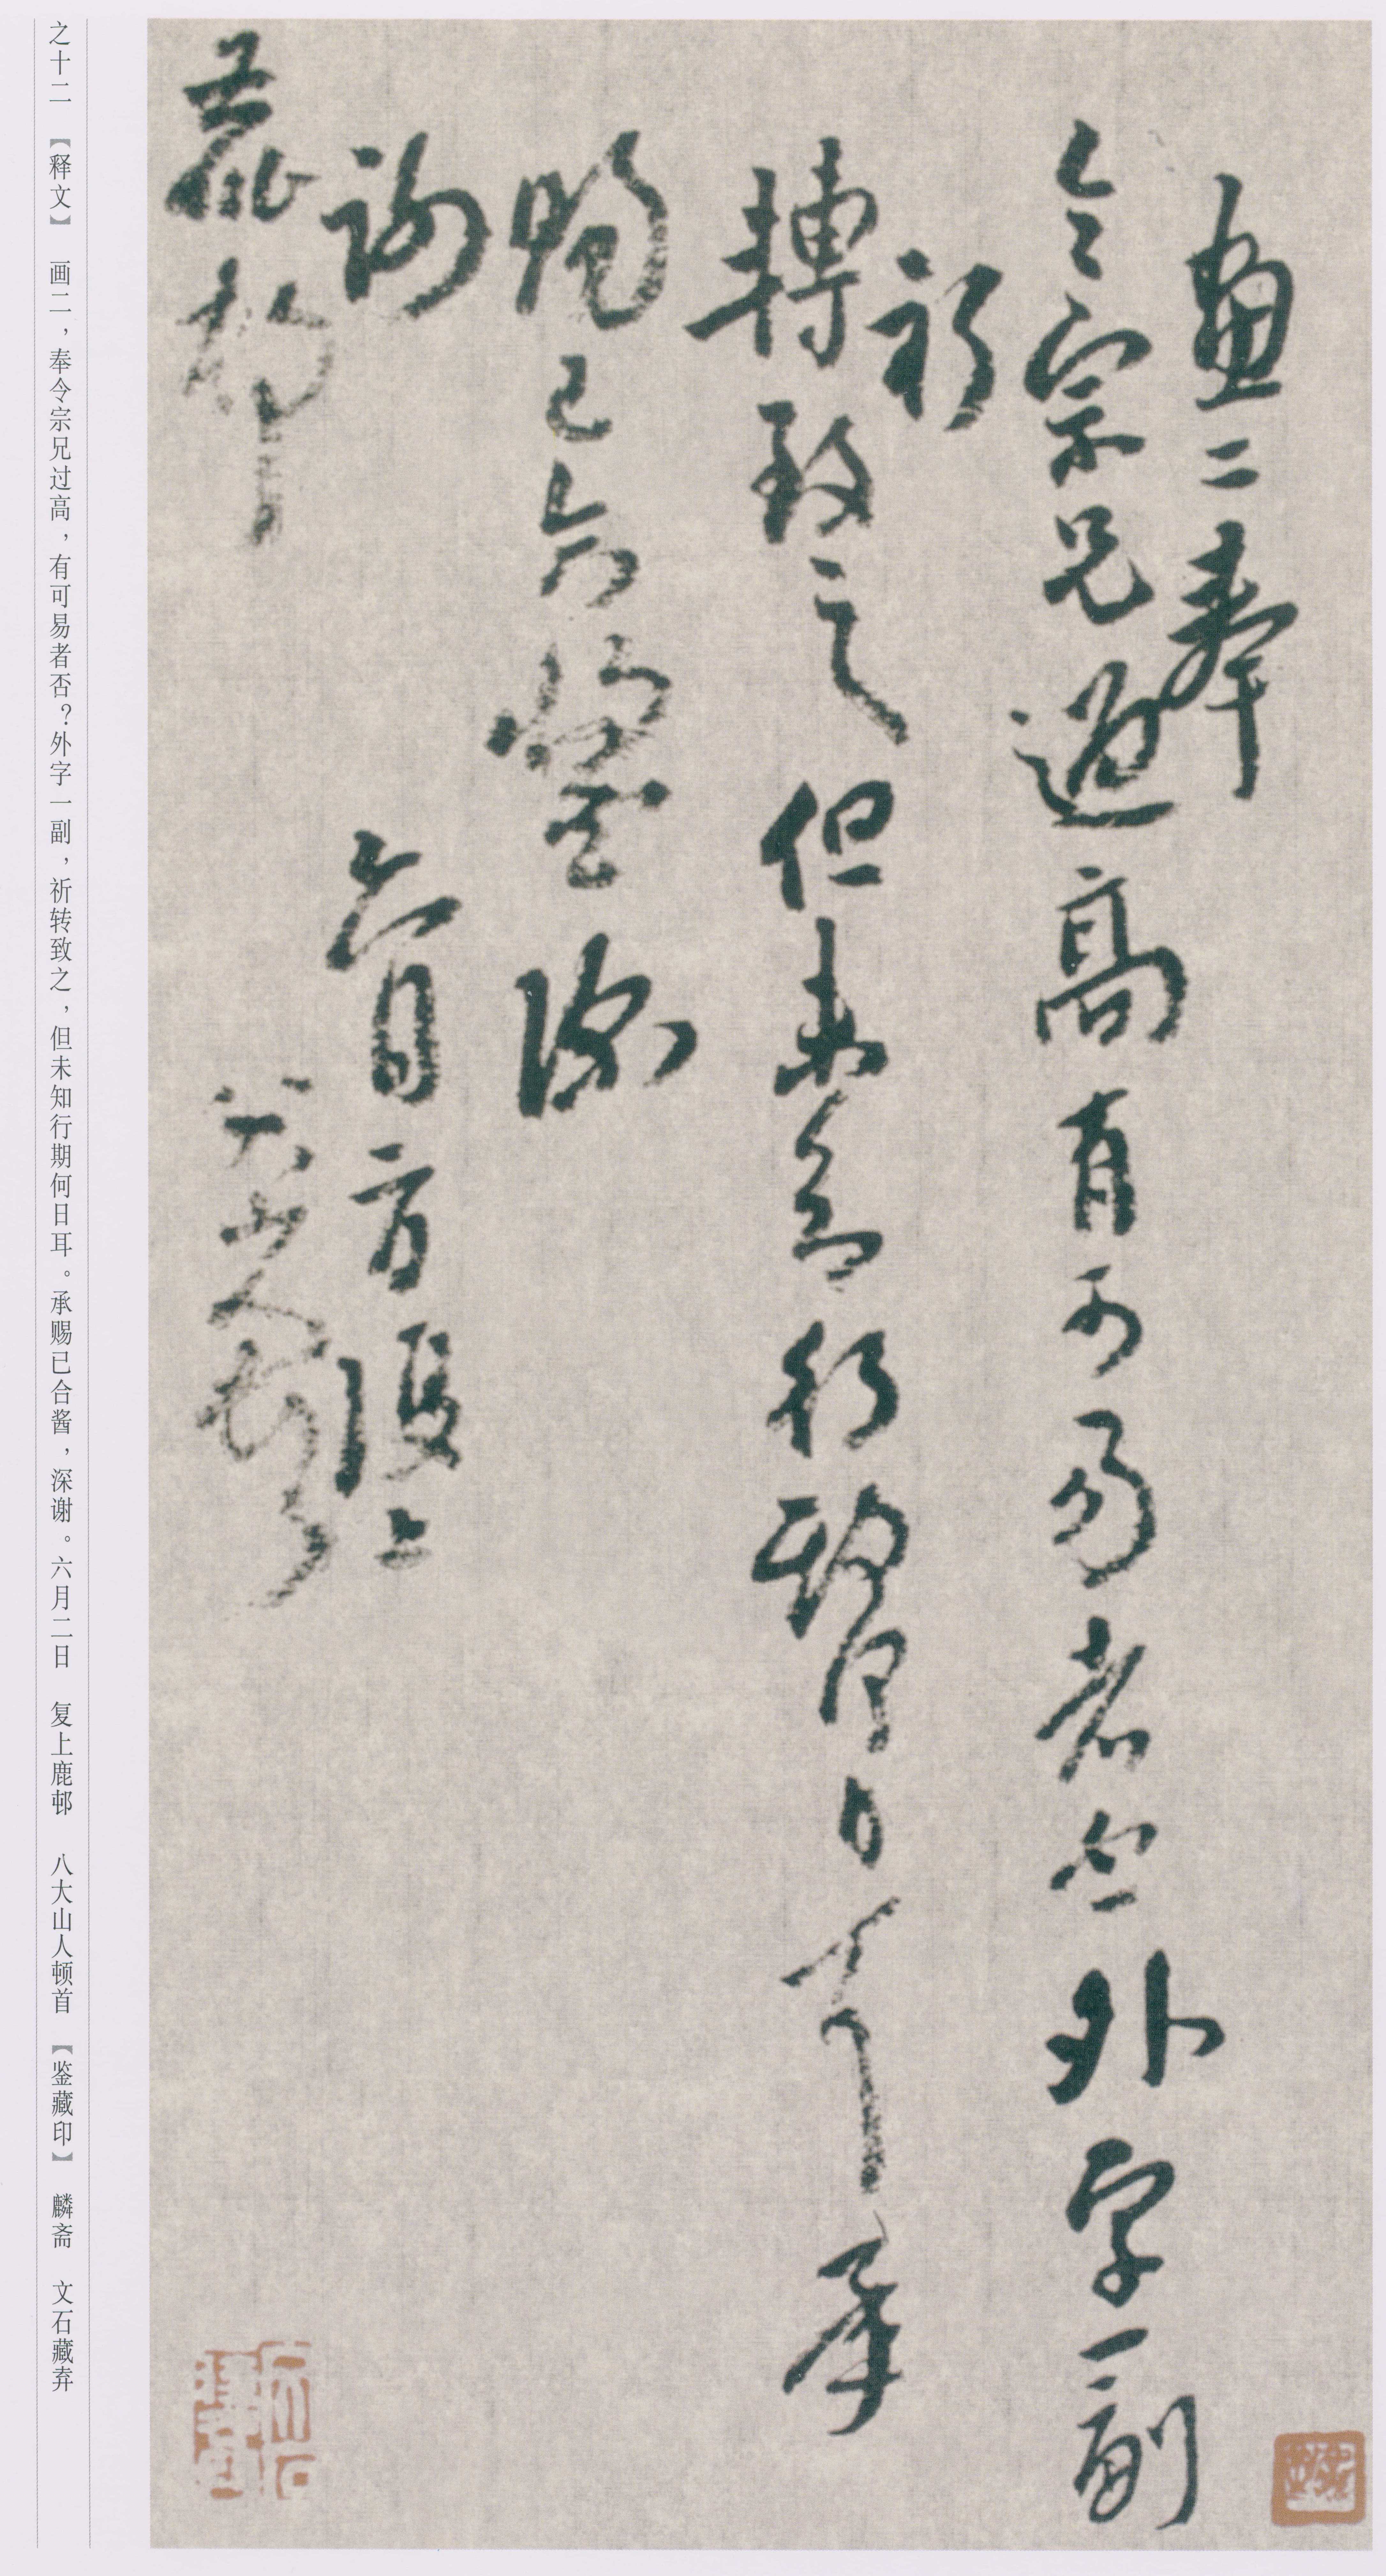 畫二奉
令宗兄過高有可易者否外字一副
祈
轉致之但未知行期何日耳承
賜已合醬深
謝 六月二日復上
鹿邨 八大山人頓首
麟齋
文石藏弆
之十二 【释文】 画二，奉令宗兄过高，有可易者否？外字一副，祈转致之，但未知行期何日耳。承赐已合酱，深谢。六月二日 复上鹿邨 八大山人顿首 【鉴藏印】 麟斋 文石藏弆